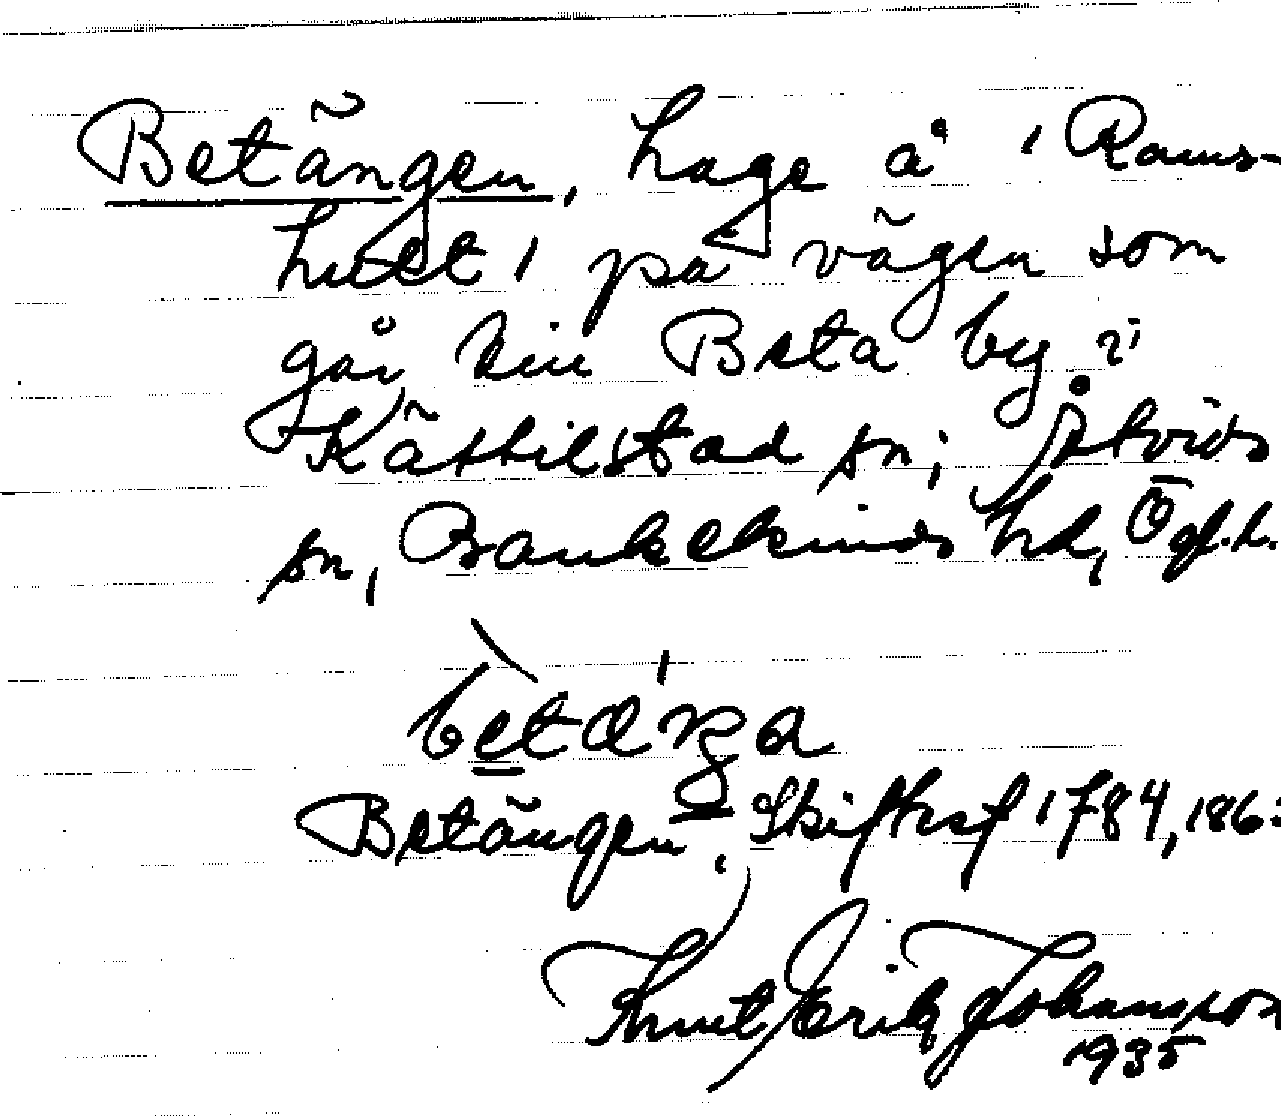 Betängen, hage å ' Rams-
hult' på vägen som
går till Beta by i
Kättilstad sn; Åtvids
sn, Bankekinds hd, Ögl.
betäŋa
Betängen. Skiftesf 1784, 186
Knut Erik Johansson
1935